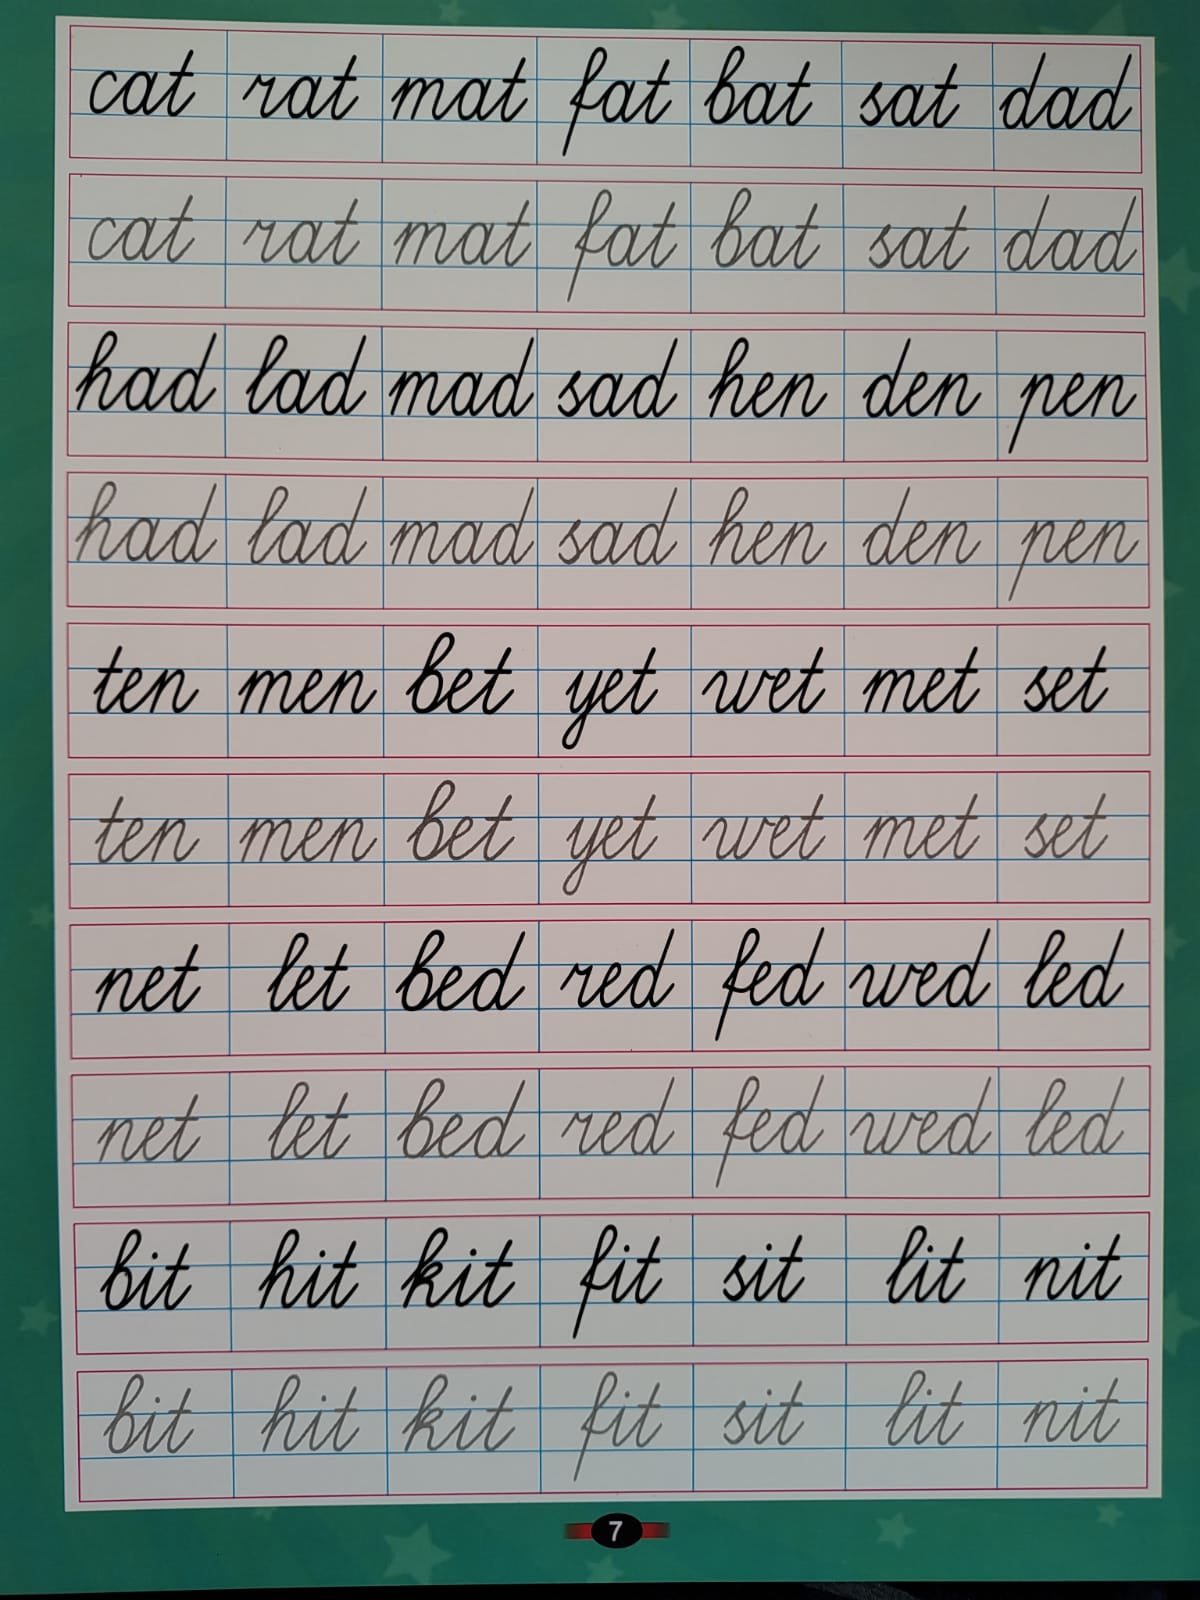 cat rat mat fat bat sat dad
cat rat mat fat bat sat dad
had lad mad sad hen den pen
had lad mad sad hen den pen
ten men bet yet wet met set
ten men bet yet wet met set
net let bed red fed wed led
net let bed red fed wed led
bit hit kit fit sit lit nit
bit hit kit fit sit lit nit
7